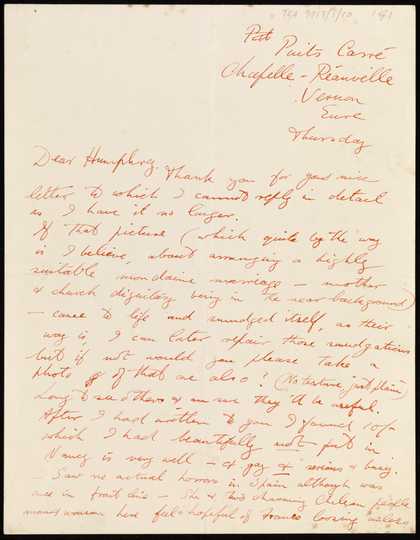 TGA 9712/1/50
Puits Carré
Chapelle-Réanville
Vernon
Eure
Thursday
Dear Humphrey. Thank you for your nice
letter to which I cannot reply in detail
as I have it no longer.
If that picture (which quite by the way
is I believe, about arranging a highly
suitable mondaine marriage – mother
& church dignitary being in the near background)
– came to life and smudged itself, as their
way is, I can later repair those smudgations
but if not would you please take a
photo of that one also? (No texture, just plain)
Long to see others & am sure they'll be useful.
After I had written to you I found 10/-
which I had beautifully not put in
Nancy is very well – & gay & serious & busy.
– Saw no actual horrors in Spain although was
once in front line – She & two charming Chilean people
man & woman here feel hopeful of Franco loosing